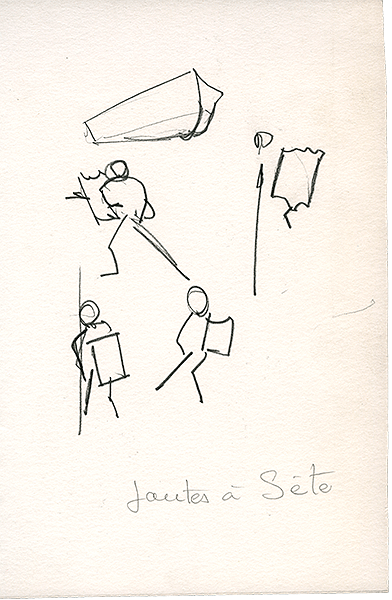 Joutes à Sète